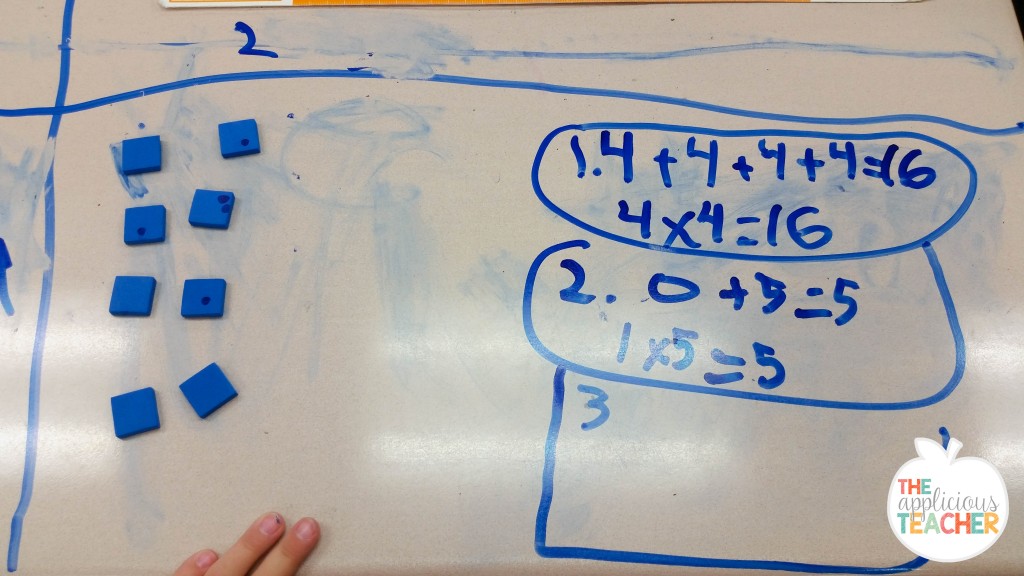 2
1. 4 + 4 + 4 + 4 = 16
4 x 4 = 16
2. 0 + 5 = 5
1 x 5 = 5
3
THE
applicious
TEACHER